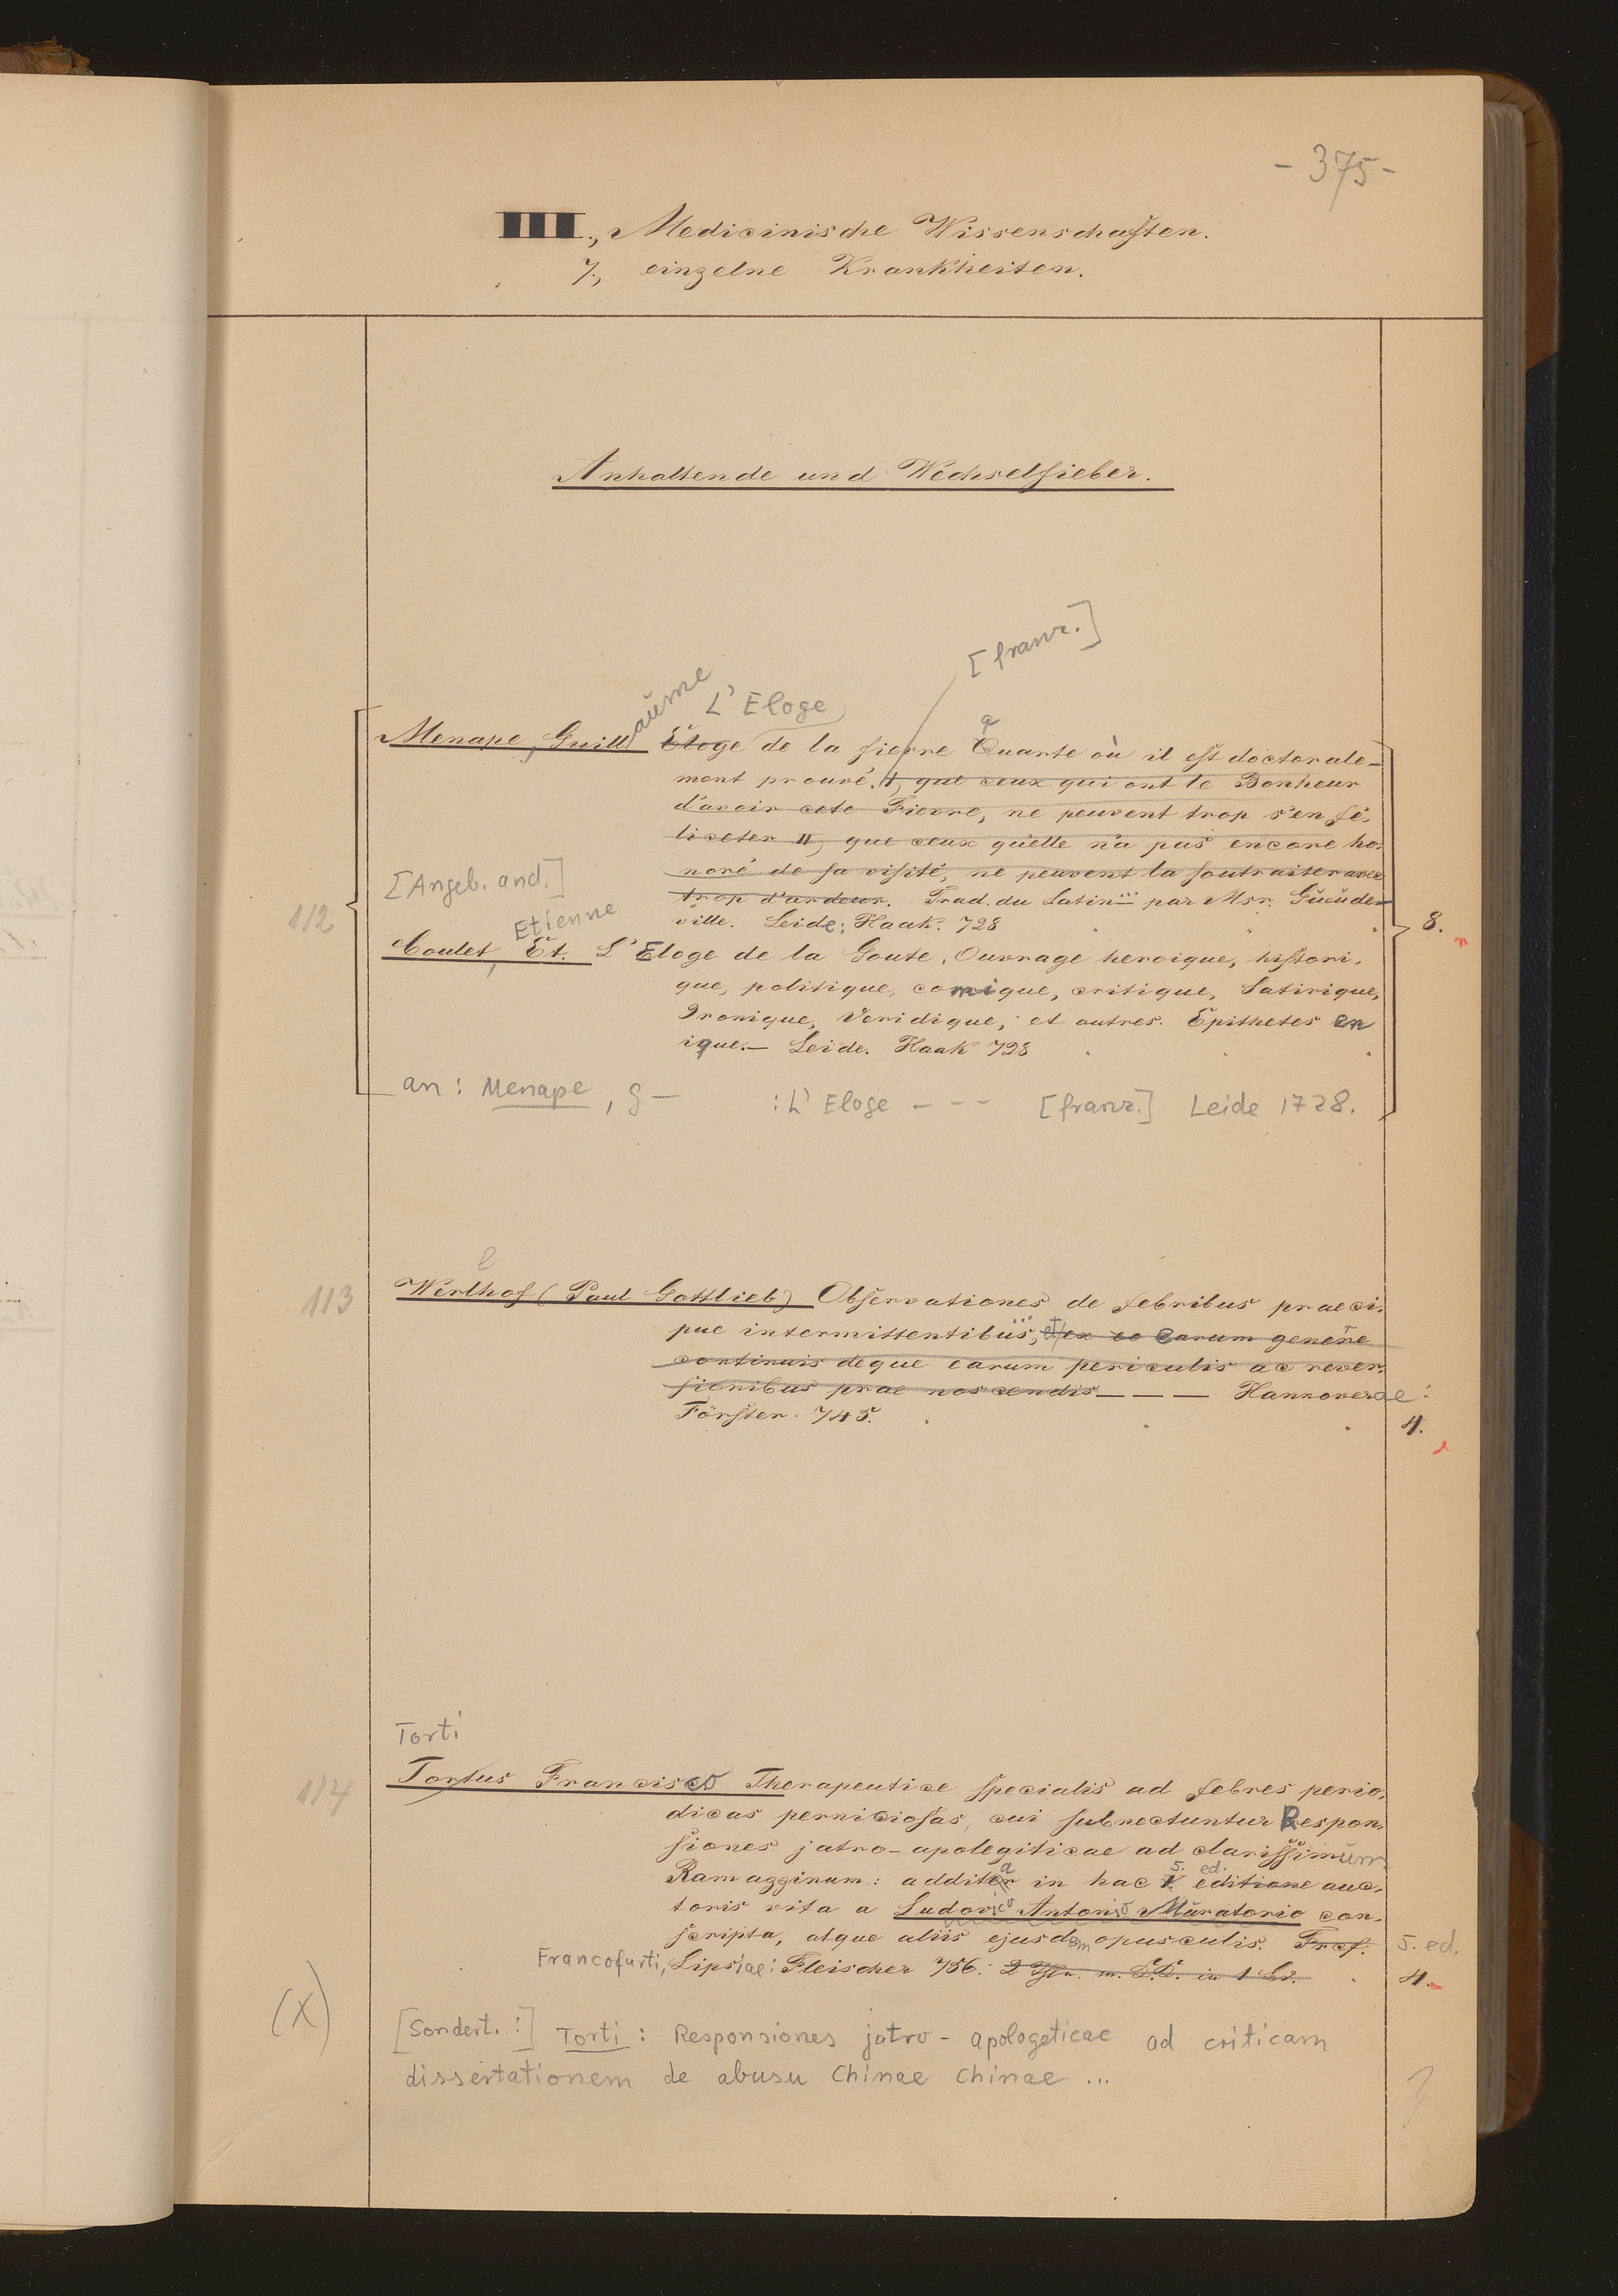 - 375 -
III., Medicinische Wissenschaften.
7., einzelne Krankheiten.
Anhaltende und Wechselfieber.
[franz.]
aume
L' Eloge
a
Menape, Guill Éloge de la fievre Quarte où il est doctorale-
ment prouvé. I, que ceux qui ont le Bonheur
d'avoir cete Fievre, ne peuvent trop s'en fé-
liceter II, que ceux qu'elle n'a pas encore ho-
noré de sa visité, ne peuvent la soutraiter avec
[Angeb. and.]
trop d'ardeur. Trad. du Latin... par Msr. Gueude-
112
Etienne
ville. Leide: Haak. 728
8.
Coulet, Et. L'Eloge de la Goute, Ouvrage heroique, histori-
que, politique, comique, critique, Satirique,
Ironique, Veridique, et autres. Epithetes en
ique.— Leide. Haak 728
an: Menape, G — : L' Eloge - - - [franz.] Leide 1728.
e
113
Werlhof (Paul Gottlieb) Observationes de febribus praeci-
pue intermittentibus, ... et ex eo earum genere
continuis deque earum periculis ac rever-
sionibus prae noscendis — — — Hannoverae:
Förster. 745.
4.
Torti
114
Tortus Francisco Therapeutice specialis ad febres perio-
dicas perniciosas, cui subnectuntur Respon-
siones jatro-apolegiticae ad clarissimum
a
5. ed.
Ramagginum: additer in hac V editione auc-
toris vita a Ludovico Antonio Muratorio con-
scripta, atque aliis ejusdem opusculis. Frcf.
5. ed.
Francofurti, Lipsiae: Fleischer 756. 2 Thle. m. in 1 Bd.
4.
(X)
[Sondert.:] Torti: Responsiones jatro-apologeticae ad criticam
dissertationem de abusu Chinae Chinae ...